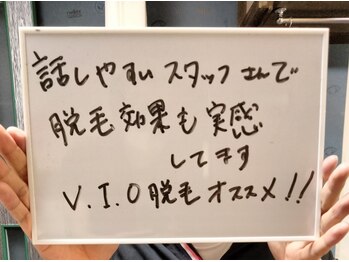 話しやすいスタッフさんで
脱毛効果も実感
してます
V.I.O脱毛オススメ!!